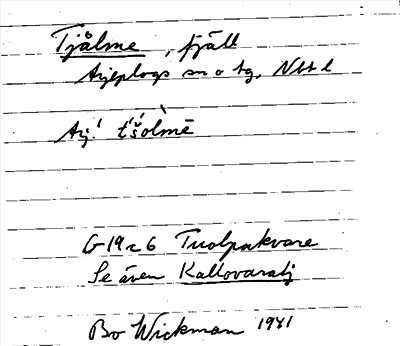 Tjålme, fjäll
Arjeplogs sn o tg, Nbt l
Arj. t'šɔlmē
G19 r 6 Tuolpakvare
Se även Kallovaratj
Bo Wickman 1941